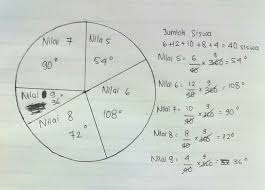 Nilai 7
90°
Nilai 5
54°
Nilai 6
108°
Nilai 8
72°
Nilai 9
36°
Jumlah Siswa
6+12+10+8+4 = 40 siswa
Nilai 5 = 6/40 x 360 9 = 54°
Nilai 6 = 12/40 x 360 9 = 108°
Nilai 7 = 10/40 x 360 9 = 90°
Nilai 8 = 8/40 x 360 9 = 72°
Nilai 9 = 4/40 x 360 9 = 36°